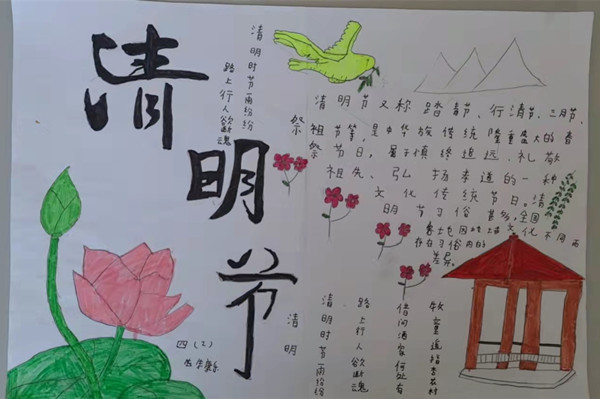 清明节
清明时节雨纷纷
路上行人欲断魂
清明节又称踏青节、行清节、三月节、
祭祖节等,是中华族传统隆重盛大的春
祭节日,属于慎终追远、礼敬
祖先、弘扬孝道的一种
文化传统节日。清
明节习俗甚多,全国
各地因地域文化不同而
存在习俗内的
差异。
清明
清明时节雨纷纷
路上行人欲断魂
借问酒家何处有
牧童遥指杏花村
四(2)